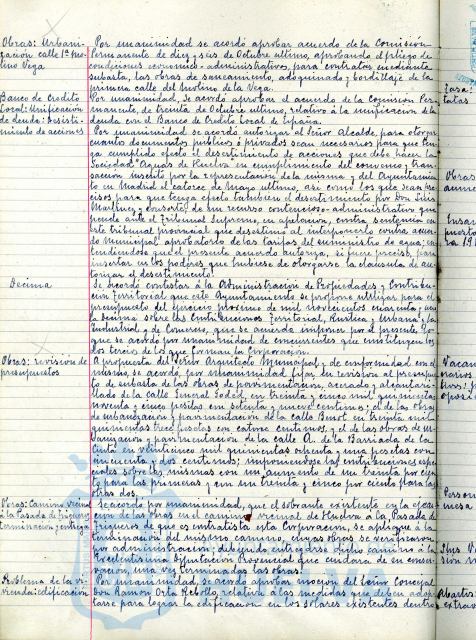 Obras: Urbani- Por unanimidad se acordó aprobar acuerdo de la Comisión
zación calle 1ª Mo- Permanente de diez y seis de Octubre ultimo, aprobando el pliego de
lino Vega condiciones economico-administrativas, para contratar mediante
subasta, las obras de saneamiento, adoquinado y bordillaje de la
primera calle del Molino de la Vega.
Banco de Credito Por unanimidad, se acordó aprobar el acuerdo de la Comision Per-
Local: Unificación manente, de treinta de Octubre ultimo, relativo a la unificación de la
deuda: Desisti- deuda con el Banco de Crédito Local de España.
miento de acciones Por unanimidad se acordó autorizar al Señor Alcalde, para otorgar
cuantos documentos publicos o privados sean necesarios para que ten-
ga cumplido efecto el desistimiento de acciones que debe hacer la
Sociedad de Aguas de Huelva en cumplimiento del convenio, tran-
sacción suscrito por la representación de la misma y del Ayuntamien-
to en Madrid el catorce de Mayo ultimo, así como los que sean pre-
cisos para que tenga efecto tambien el desistimiento por Don Luis
Martinez y consorte, de un recurso contencioso-administrativo que
pende ante el Tribunal Supremo, en apelación, contra sentencia de
este tribunal provincial que desestimó al interponerlo contra acuer-
do Municipal aprobatorio de las tarifas del suministro de agua; en-
tendiendose que el presente acuerdo autoriza, si fuere preciso, para
insertar en los poderes que hubiese de otorgarse la clausula de au-
torizar el desistimiento.
Decima Se acordó contestar a la Administración de Propiedades y Contribu-
ción Territorial que este Ayuntamiento se propone utilizar para el
presupuesto del ejercicio proximo de mil novecientos cuarenta y
la decima sobre las Contribuciones Territorial, Rustica y Urbana y la
Industrial y de Comercio, que se acuerda imponer por el presente, lo
que se acordó por unanimidad de concurrentes que constituyen los
dos tercios de los que forman la Corporación.
Obras: revisión de A propuesta del Señor Arquitecto Municipal y de conformidad con el
presupuestos mismo, se acordó, por unanimidad fijar en revisión el presupues-
to de subasta de las obras de pavimentación, acerado y alcantari-
llado de la calle General Sodeo, en treinta y cinco mil quinientas
noventa y cinco pesetas con setenta y nueve centimos; el de las obras
de urbanización y pavimentación de la calle Benot en treinta mil
quinientas trece pesetas con catorce centimos, y el de las obras de ur-
banización y pavimentación de la calle A. de la Barriada de la
Cinta en veinticinco mil quinientas ochenta y una pesetas con
cincuenta y dos centimos; imponiendose las contribuciones espe-
ciales sobre las mismas con un aumento de un treinta por cien-
to para las primeras y con un treinta y cinco por ciento para las
otras dos.
Obras: Camino vecinal Se acordó por unanimidad, que el sobrante existente en la ejecu-
a la Pasada de Jigueros ción de las obras en el camino vecinal de Huelva a la Pasada de
terminación y entrega Jigueros de que es contratista esta Corporacion, se aplique a la
terminación del mismo camino, cuyas obras se verificaron
por administracion; debiendo entregarse dicho camino a la
Excelentisima Diputación Provincial que cuidara de su conser-
vacion, una vez terminadas las obras.
Problema de la vi- Por unanimidad, se acordó aprobar mocion del Señor Concejal
vienda: edificación Don Ramon Orta Rebollo, relativo a las medidas que deben adop-
tarse para lograr la edificacion en los solares existentes dentro